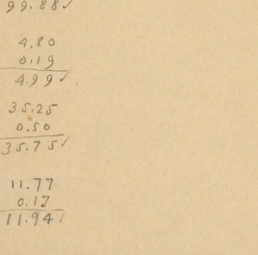 99.88✓
4.80
0.19
4.99✓
35.25
0.50
35.75✓
11.77
0.17
11.94✓